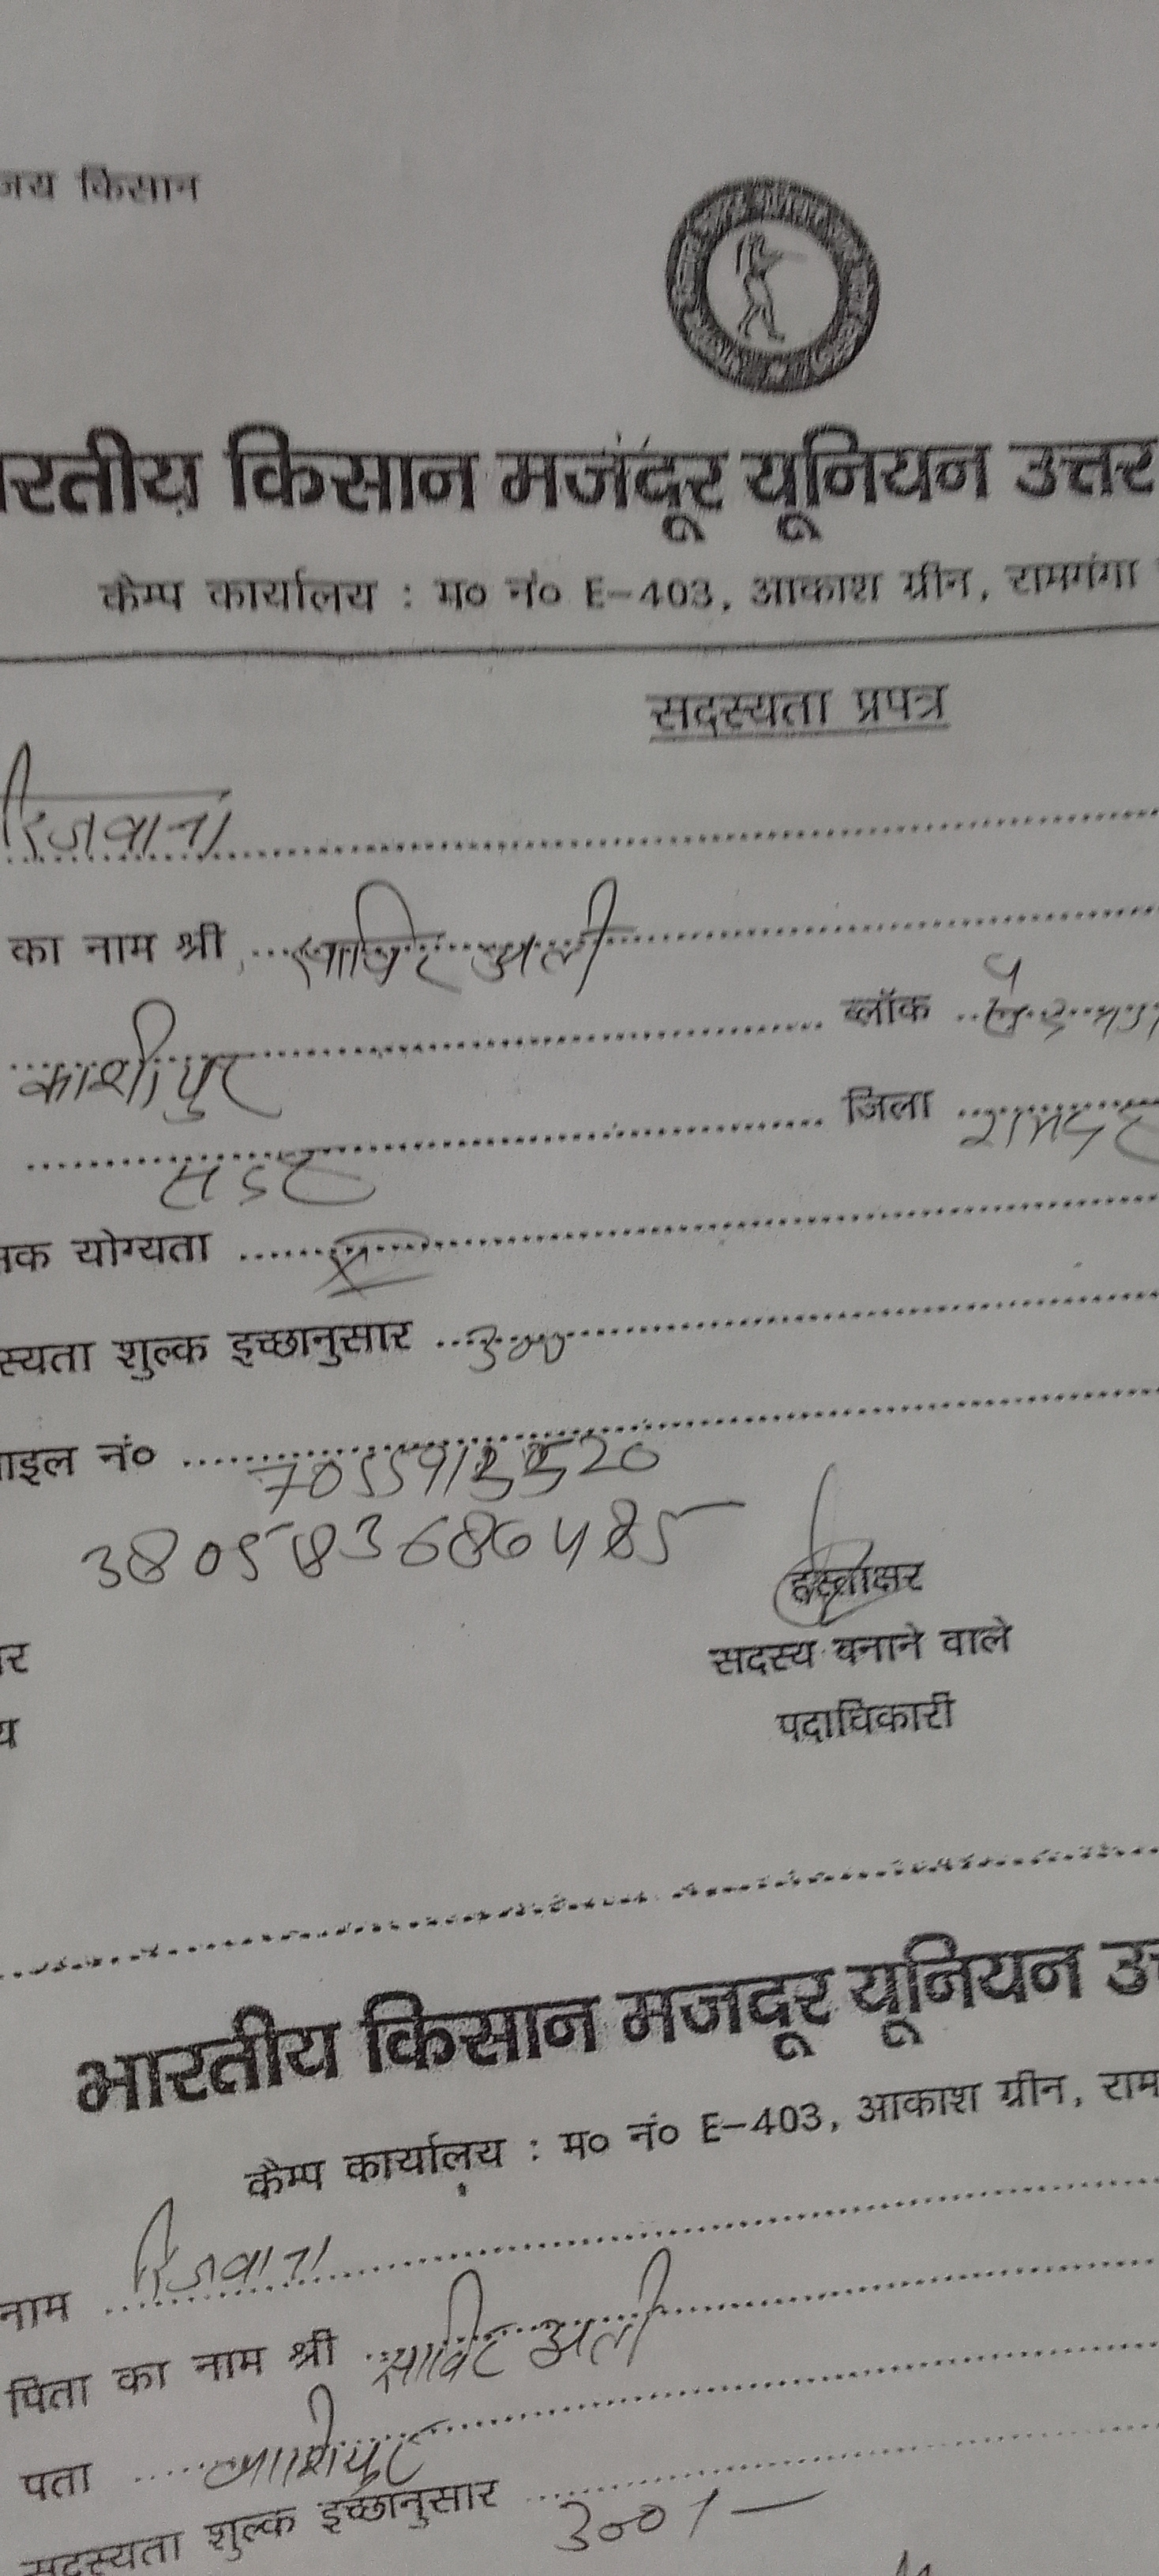 जय किसान
रतीय किसान मजदूर यूनियन उत्तर
कैम्प कार्यालय : म० नं० E-403, आकाश ग्रीन, रामगंगा
सदस्यता प्रपत्र
रिजवान
का नाम श्री साबिर अली
काशीपुर ब्लॉक
सदर जिला
योग्यता
स्यता शुल्क इच्छानुसार 300
इल नं०
हस्ताक्षर
सदस्य बनाने वाले
पदाधिकारी
भारतीय किसान मजदूर यूनियन
कैम्प कार्यालय : म० नं० E-403, आकाश ग्रीन, राम
नाम रिजवान
पिता का नाम श्री साबिर अली
पता काशीपुर
सदस्यता शुल्क इच्छानुसार 300/-